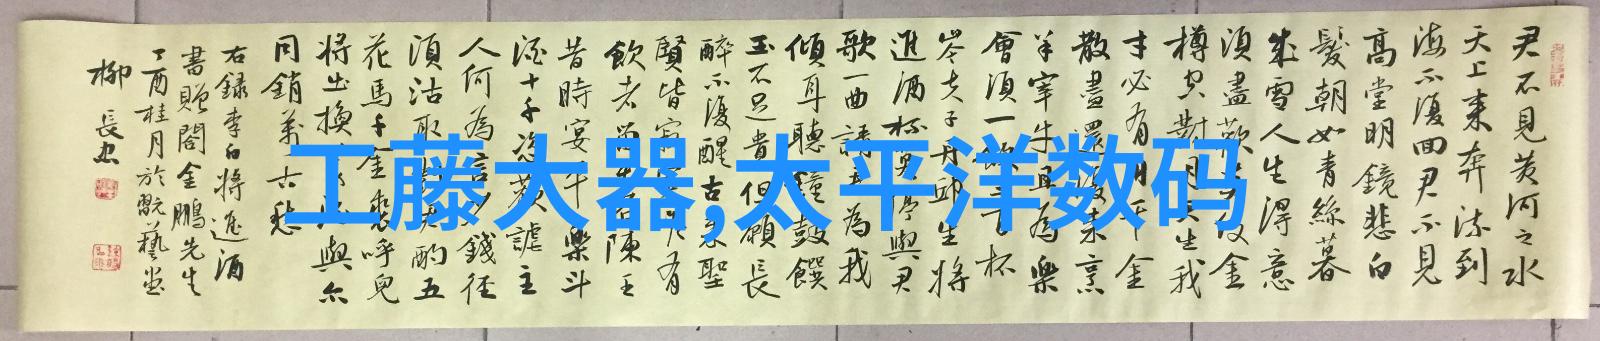 君不見黃河之水
天上来奔流到
海不復回君不見
高堂明鏡悲白
髮朝如青絲暮
成雪人生得意
須盡歡莫使金
樽空對月天生我
才必有用千金
散盡還復来烹
羊宰牛且為樂
會須一飲三百杯
岑夫子丹邱生將
進酒杯莫停與君
歌一曲請君為我
傾耳聽鐘鼓饌
玉不足貴但願長
醉不復醒古来聖
賢皆寂有
飲者留陳王
昔時宴平樂斗
酒十千恣歡謔主
人何為言少錢徑
須沽取對君酌五
花馬千金裘呼兒
將出換酒與尔
同銷萬古愁
右録李白將進酒
書贈閣金鵬先生
丁酉桂月於翫藝堂
柳長忠
工藤大器,太平洋数码